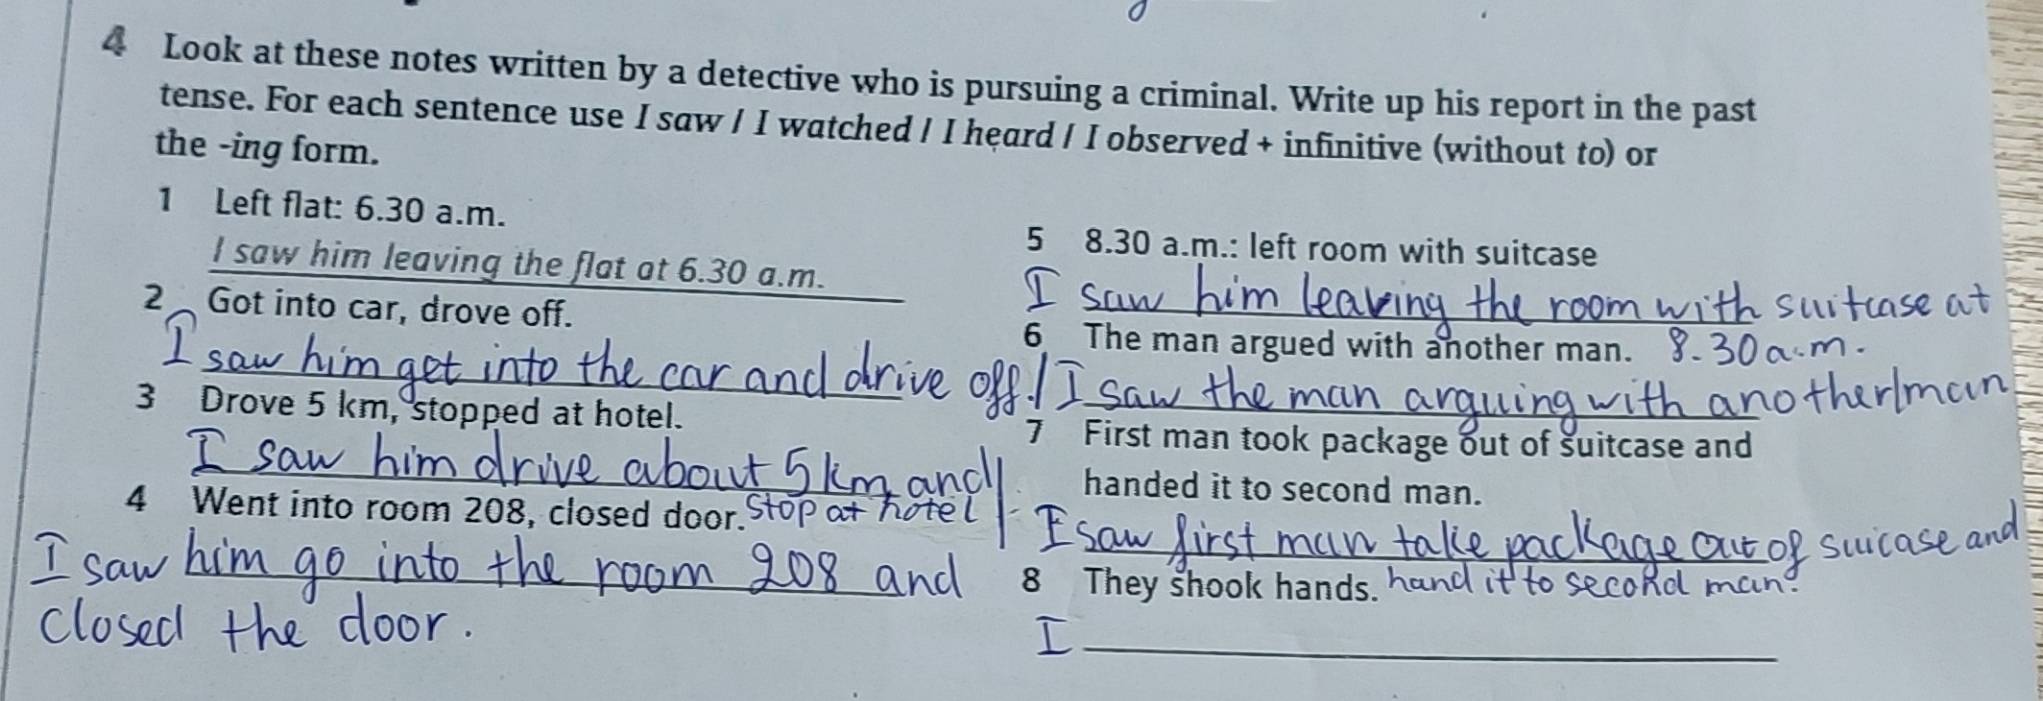 4 Look at these notes written by a detective who is pursuing a criminal. Write up his report in the past
tense. For each sentence use I saw / I watched / I heard / I observed + infinitive (without to) or
the -ing form.
1 Left flat: 6.30 a.m.
I saw him leaving the flat at 6.30 a.m.
2 Got into car, drove off.
I saw him get into the car and drive off.
3 Drove 5 km, stopped at hotel.
I saw him drive about 5 km and
stop at hotel
4 Went into room 208, closed door.
I saw him go into the room 208 and
closed the door.
5 8.30 a.m.: left room with suitcase
I saw him leaving the room with suitcase at
8.30 a.m.
6 The man argued with another man.
I saw the man arguing with another man
7 First man took package out of suitcase and
handed it to second man.
I saw first man take package out of suicase and
hand it to second man.
8 They shook hands.
I